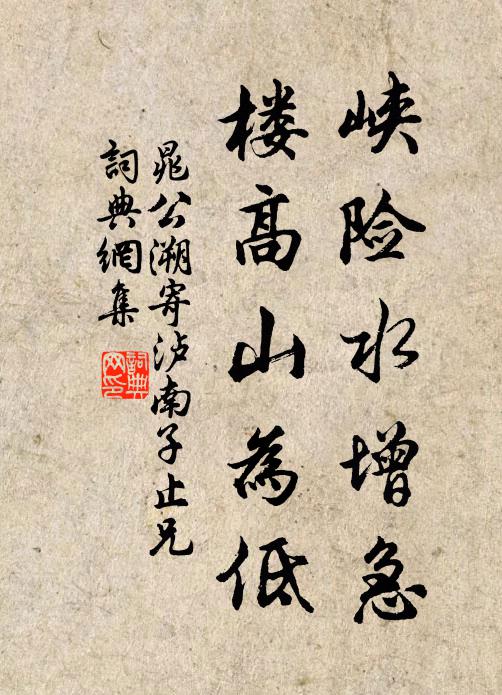 峡险水增急
楼高山為低
晁公溯寄泸南子止兄
詞典網集
詞典网印